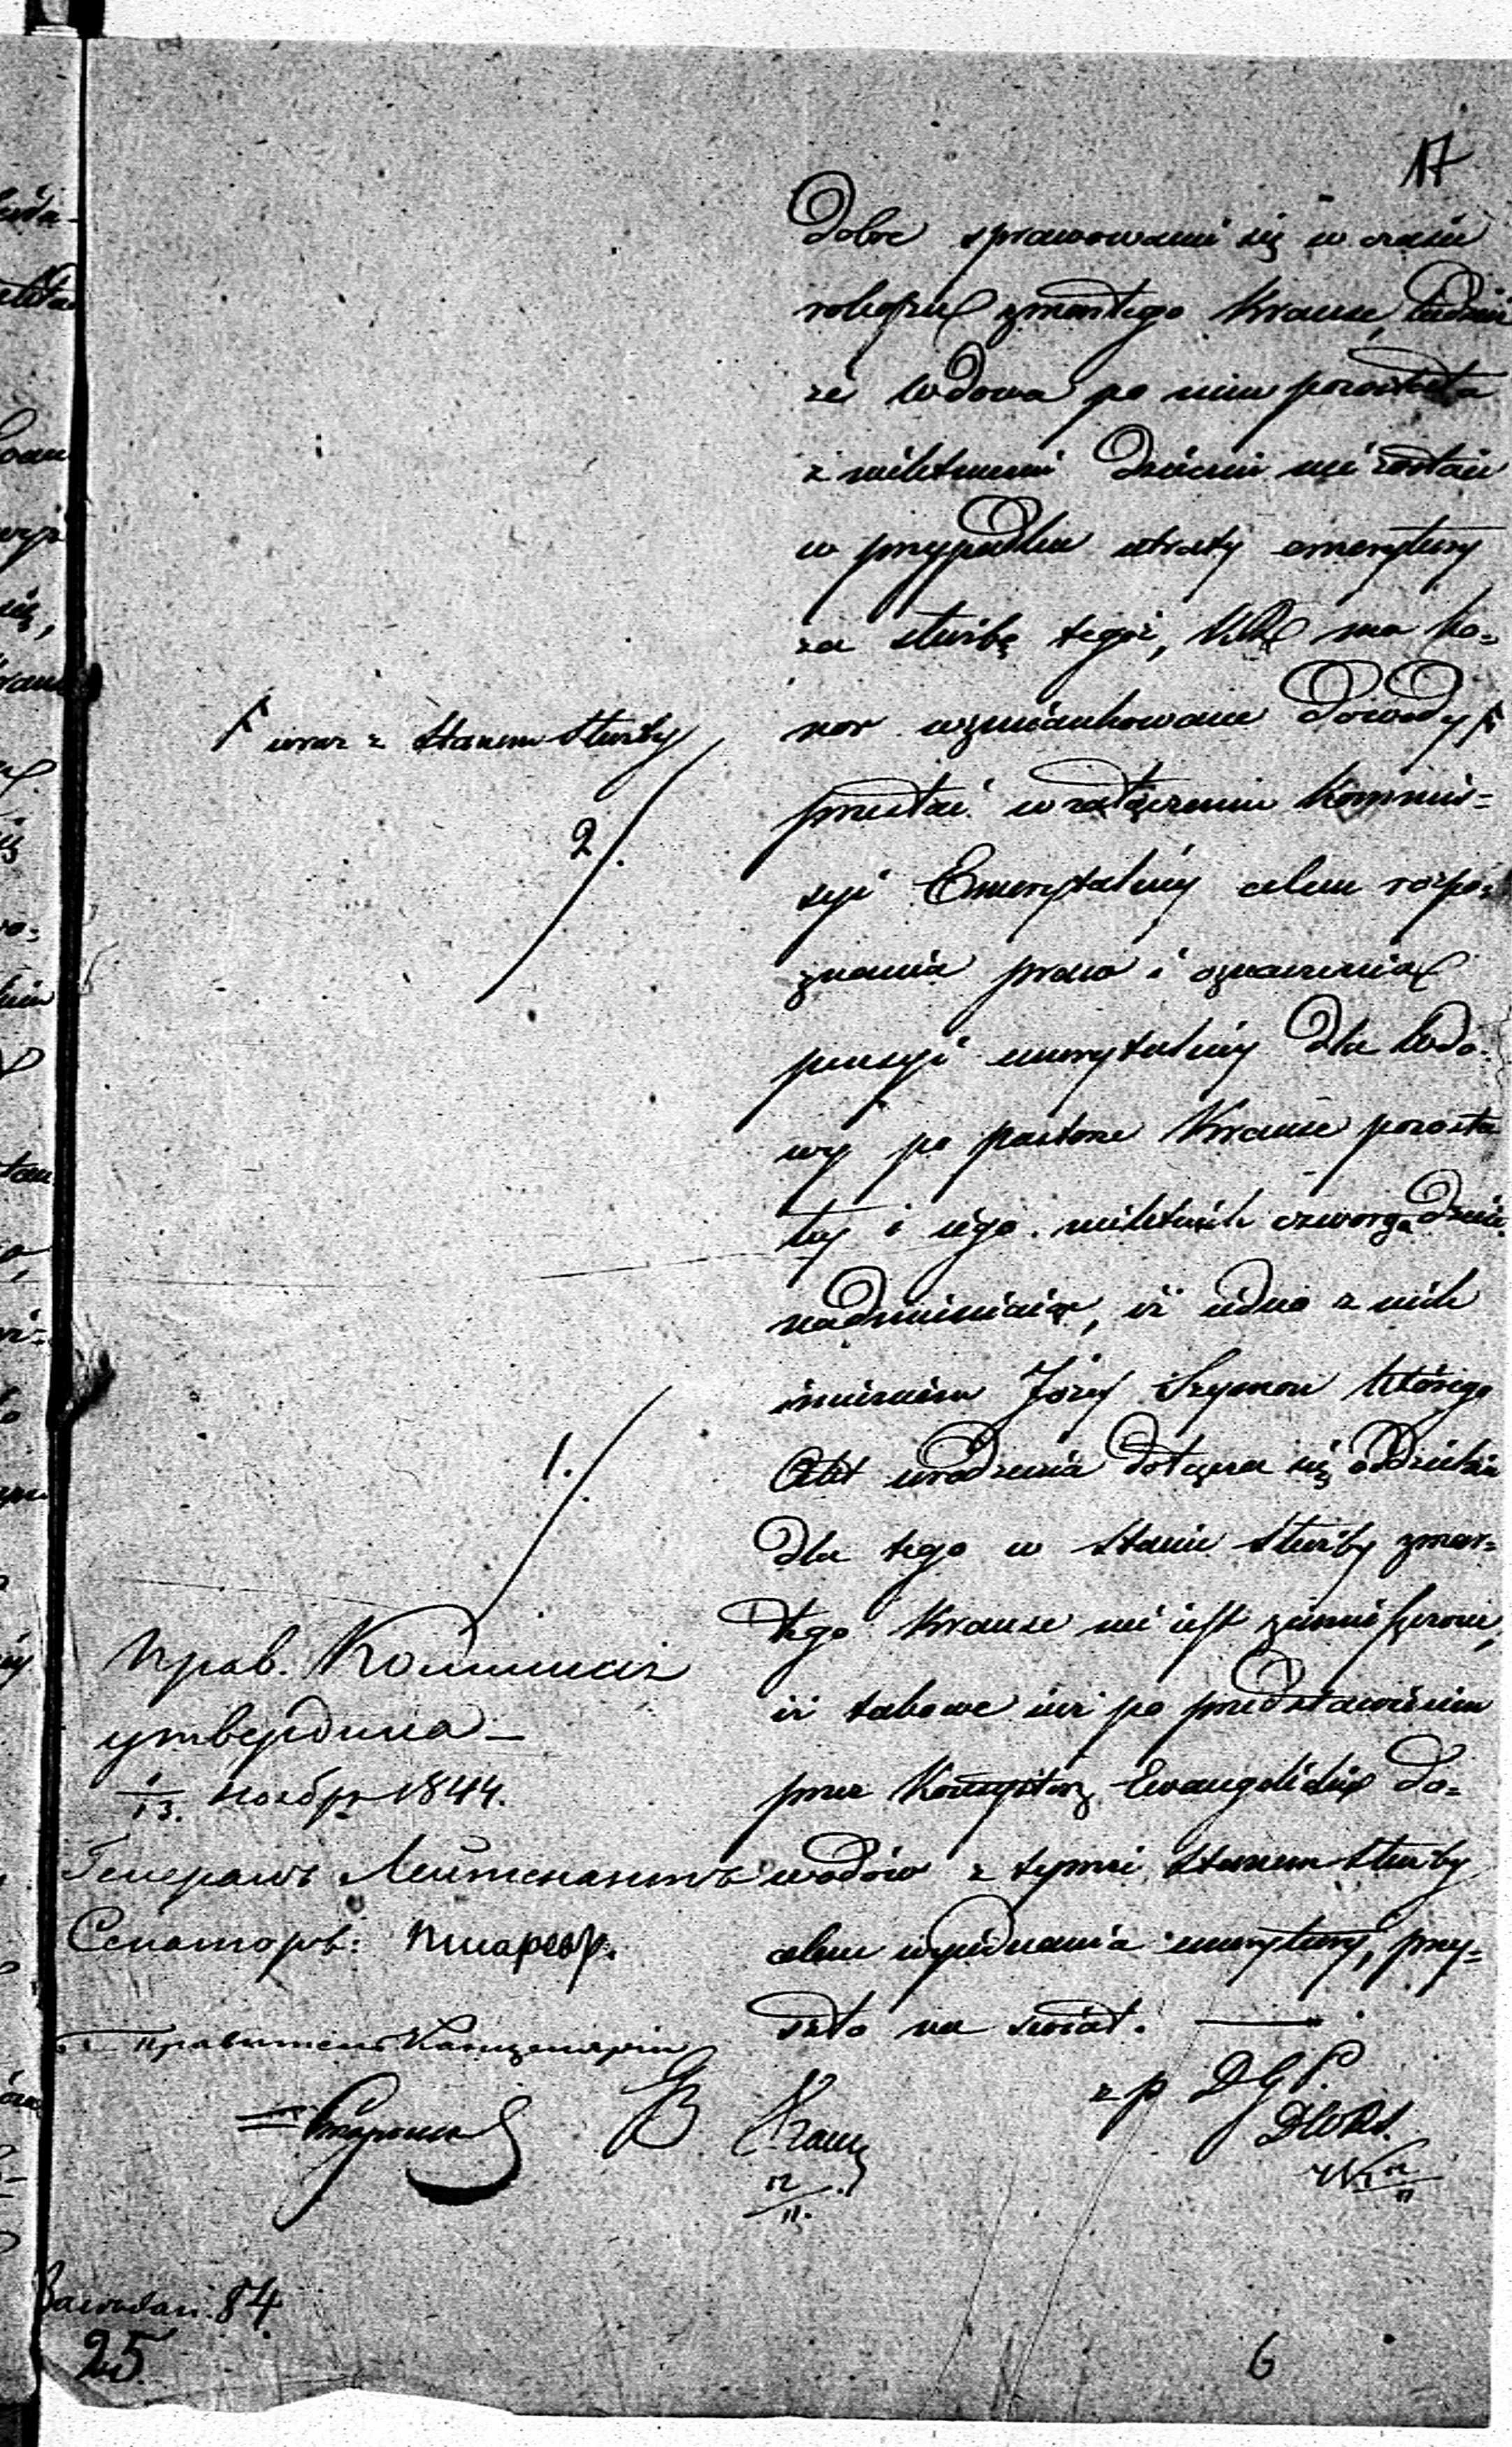 17
dobre sprawowanie się w czasie
zmarłego Krause, tudzież
że wdowa po nim pozostała
z nieletniemi dziećmi nie zostaie
w przypadku utraty emerytury
za służbę tegoż, ma ho-
nor wzmiankowane dowody
wraz z Stanem Służby
przesłać w załączeniu Kommis-
syi Emerytalnéy celem rozpo-
znania praw i oznaczenia
pensyi emerytalnéy dla Wdo-
wy po pastorze Krause pozosta
łéy i iego nieletnich czworga dzieci
nadmieniaiąc, iż iedno z nich
imieniem Józef Szymon którego
Akt urodzenia dołącza się oddzielnie
dla tego w stanie służby zmar-
łego Krause nie iest zamieszczone,
iż takowe iuż po przedstawieniu
przez Konsystorz Ewangelicki do-
wodów z tymże stanem służby
celem wyiednania emerytury, przy-
szło na świat.
2/.
1./.
Прав. Коммисія
утвердила
1/13. Ноября 1844.
Генералъ Лейтенантъ
Сенаторъ: Писаревъ.
Правитель Канцеляріи
z p D G P.
12/11.
84.
25
6